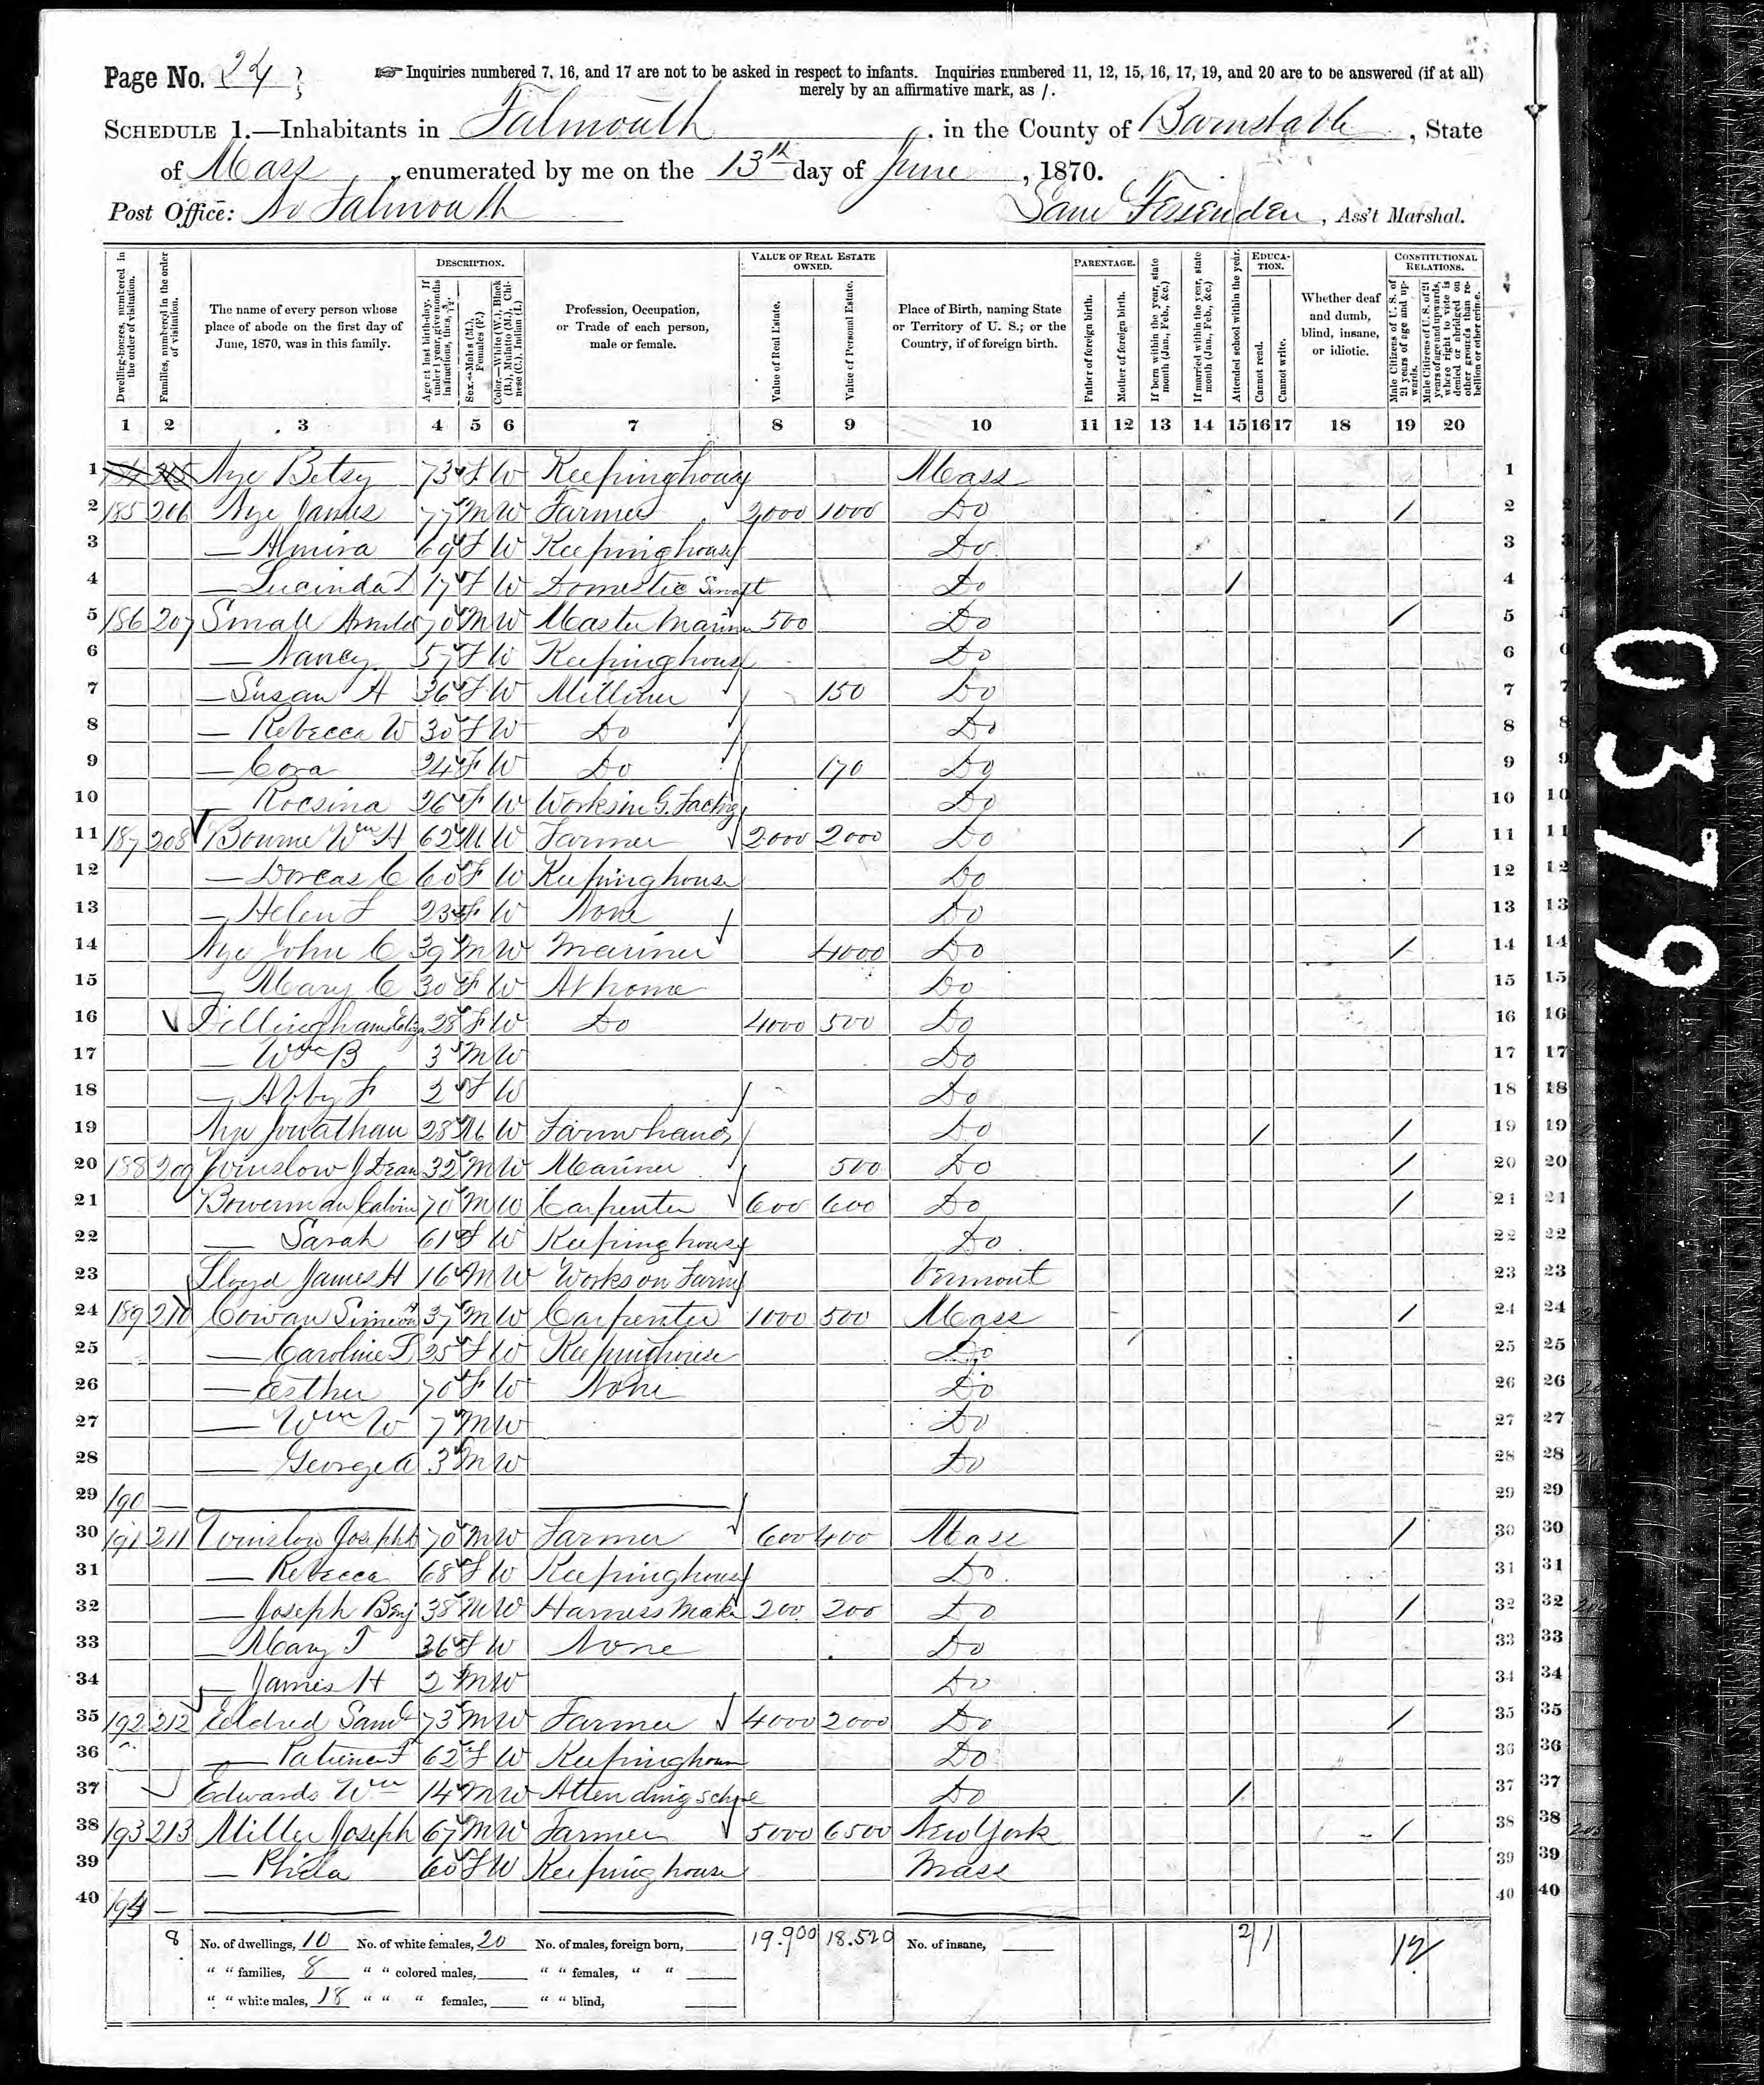 Page No. 24
☞ Inquiries numbered 7, 16, and 17 are not to be asked in respect to infants. Inquiries numbered 11, 12, 15, 16, 17, 19, and 20 are to be answered (if at all)
merely by an affirmative mark, as /.
SCHEDULE 1.—Inhabitants in Falmouth, in the County of Barnstable, State
of Mass, enumerated by me on the 13th day of June, 1870.
Post Office: No Falmouth Sam Fessenden, Ass't Marshal.
DESCRIPTION. VALUE OF REAL ESTATE OWNED. PARENTAGE. EDUCATION. CONSTITUTIONAL RELATIONS.
Dwelling-houses, numbered in the order of visitation.
Families, numbered in the order of visitation.
The name of every person whose place of abode on the first day of June, 1870, was in this family.
Age at last birth-day. If under 1 year, give months in fractions, thus, 3/12.
Sex.—Males (M.), Females (F.)
Color.—White (W.), Black (B.), Mulatto (M.), Chinese (C.), Indian (I.)
Profession, Occupation, or Trade of each person, male or female.
Value of Real Estate.
Value of Personal Estate.
Place of Birth, naming State or Territory of U. S.; or the Country, if of foreign birth.
Father of foreign birth.
Mother of foreign birth.
If born within the year, state month (Jan., Feb., &c.)
If married within the year, state month (Jan., Feb., &c.)
Attended school within the year.
Cannot read.
Cannot write.
Whether deaf and dumb, blind, insane, or idiotic.
Male Citizens of U. S. of 21 years of age and upwards.
Male Citizens of U. S. of 21 years of age and upwards, where right to vote is denied or abridged on other grounds than rebellion or other crime.
1 2 3 4 5 6 7 8 9 10 11 12 13 14 15 16 17 18 19 20
1 Nye Betsy 73 F W Keeping house Mass 1
2 185 206 Nye James 77 M W Farmer 2000 1000 Do / 2
3 — Almira 69 F W Keeping house Do 3
4 — Lucinda 17 F W Domestic Servt Do / 4
5 186 207 Small Arnold 70 M W Master Mariner 500 Do / 5
6 — Nancy 57 F W Keeping house Do 6
7 — Susan A 36 F W Milliner 150 Do 7
8 — Rebecca W 30 F W Do Do 8
9 — Cora 24 F W Do 170 Do 9
10 — Rocsina 26 F W Works in G. Factry Do 10
11 187 208 Bourne Wm H 62 M W Farmer 2000 2000 Do / 11
12 — Dorcas C 60 F W Keeping house Do 12
13 — Helen F 23 F W None Do 13
14 Nye John C 39 M W Mariner 4000 Do / 14
15 — Mary C 30 F W At home Do 15
16 Dillingham Eliza 28 F W Do 4000 500 Do 16
17 — Wm B 3 M W Do 17
18 — Abby F 2 F W Do 18
19 Nye Jonathan 28 M W Farm hand Do / / 19
20 188 209 Winslow J Dean 32 M W Mariner 500 Do / 20
21 Bowerman Calvin 70 M W Carpenter 600 600 Do / 21
22 — Sarah 61 F W Keeping house Do 22
23 Lloyd James H 16 M W Works on Farm Vermont 23
24 189 210 Cowan Simeon 37 M W Carpenter 1000 500 Mass / 24
25 — Caroline 25 F W Keeping house Do 25
26 — Esther 70 F W None Do 26
27 — Wm W 7 M W Do 27
28 — George A 3 M W Do 28
29 190 — 29
30 191 211 Winslow Joseph 70 M W Farmer 600 400 Mass / 30
31 — Rebecca 68 F W Keeping house Do 31
32 — Joseph Benj 38 M W Harness Make 200 200 Do / 32
33 — Mary T 36 F W None Do 33
34 — James H 2 M W Do 34
35 192 212 Eldred Saml 73 M W Farmer 4000 2000 Do / 35
36 — Patience F 62 F W Keeping house Do 36
37 Edwards Wm 14 M W Attending school Do / 37
38 193 213 Miller Joseph 67 M W Farmer 5000 6500 New York / 38
39 — Phila 60 F W Keeping house Mass 39
40 194 — 40
8 No. of dwellings, 10 No. of white females, 20 No. of males, foreign born, 19.900 18.520 No. of insane, 2 1 12
" " families, 8 " " colored males, " " females, " "
" " white males, 18 " " " females, " " blind,
0379